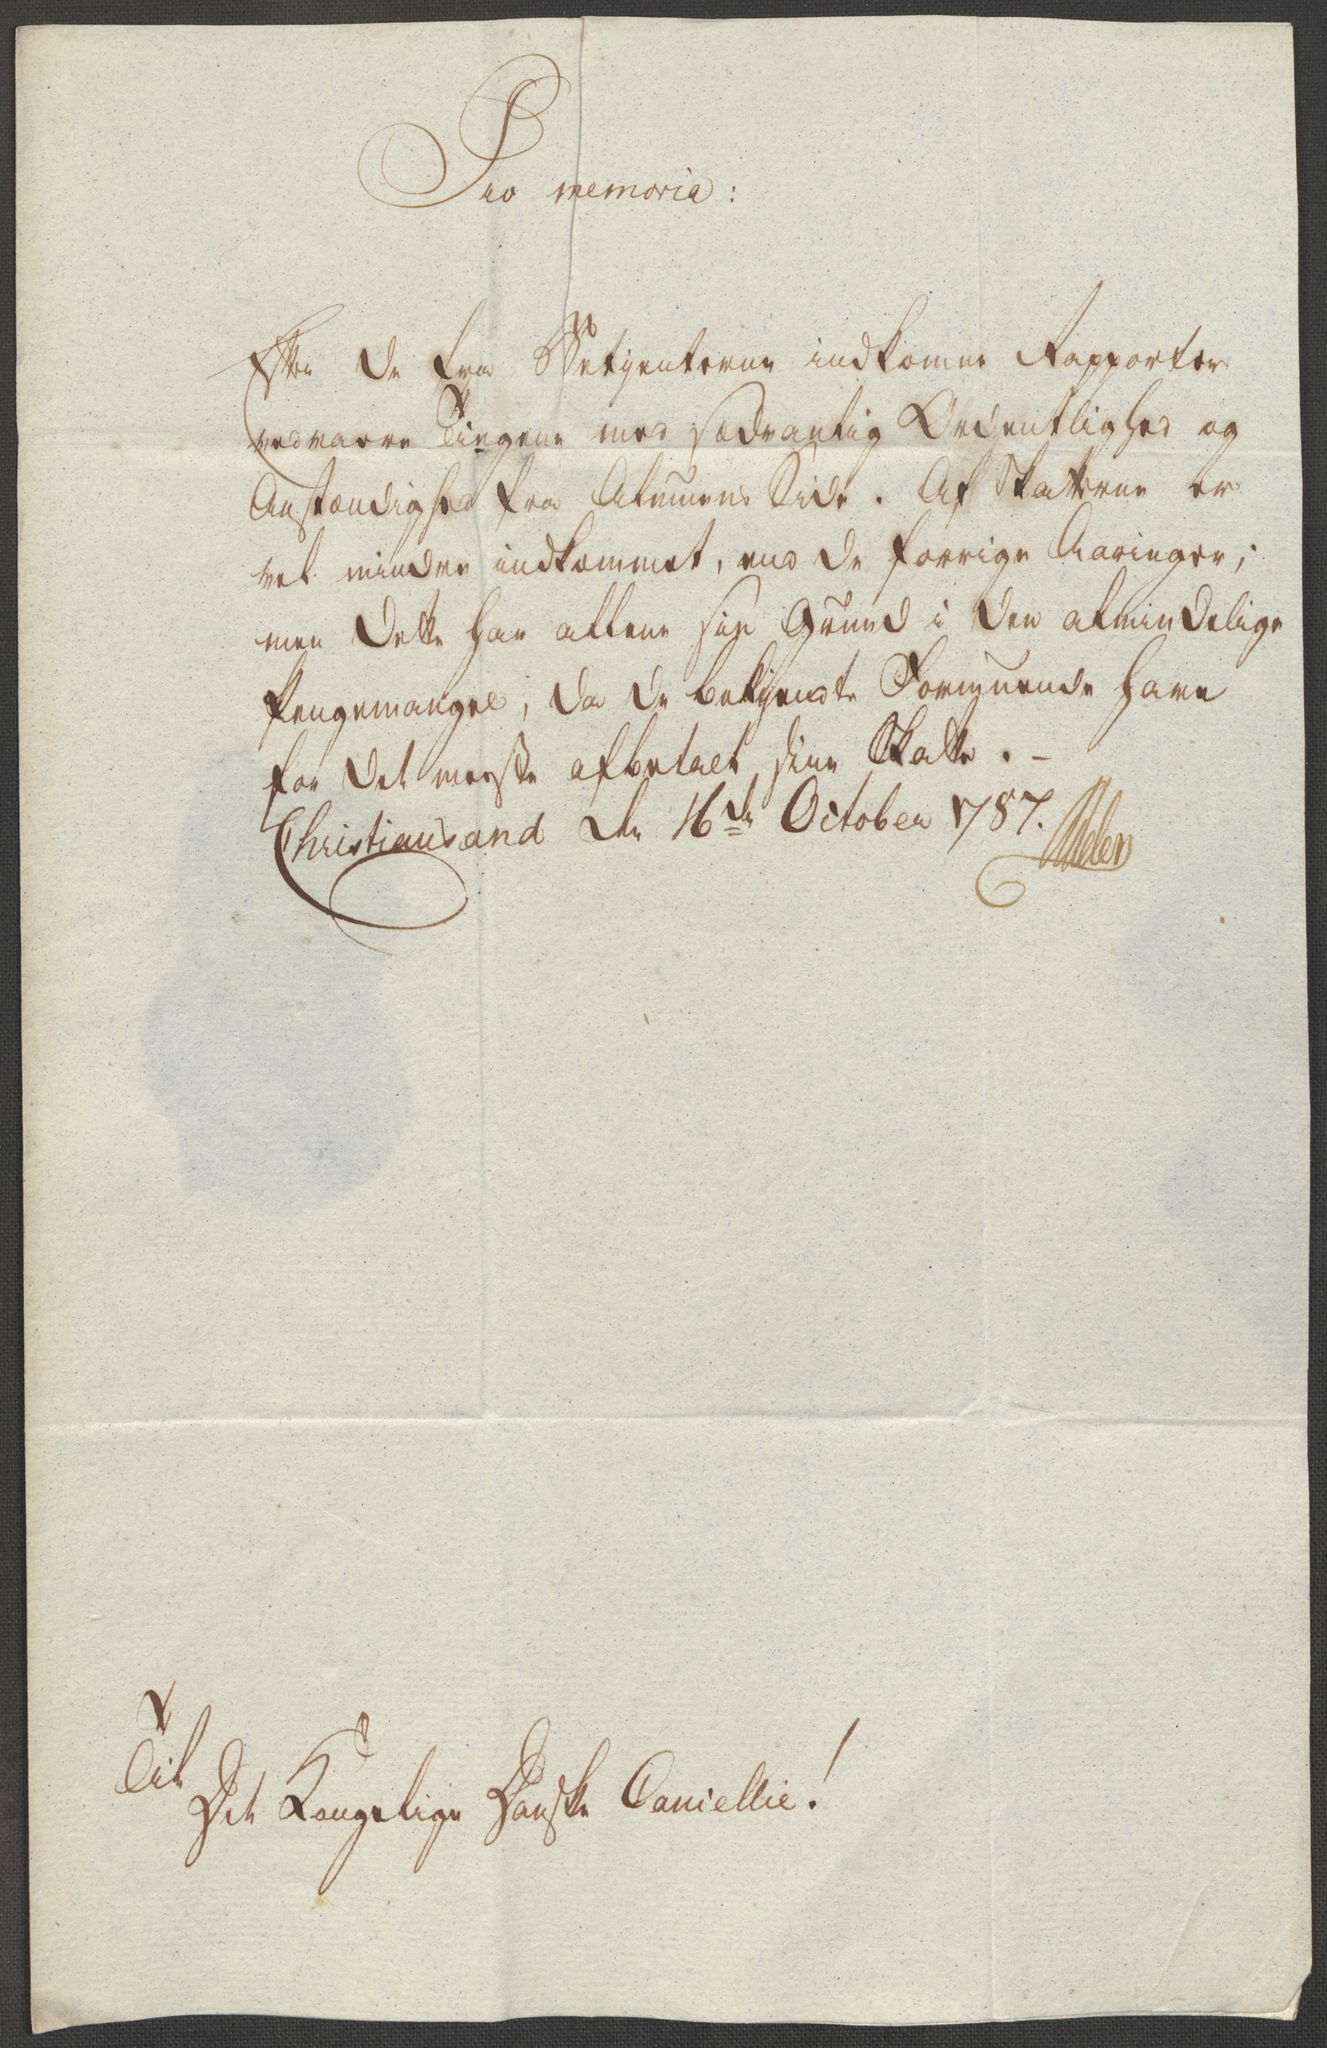 Pro memoria:
Efter de fra Betjenterne indkomne Rapporter
vedvarer Tingene med sædvanlig Ordentlighed og
Anstændighed fra Almuens Side. Af Skatterne er
vel mindre indkommet, end de forrige Aaringer;
men dette har allene sin Grund i den almindelige
Pengemangel, da de bekjendte Formuende have
for det meeste afbetalt sine Skatter. -
Christiansand den 16de October 1787. Adeler
Til
Det Kongelige Danske Cancellie!